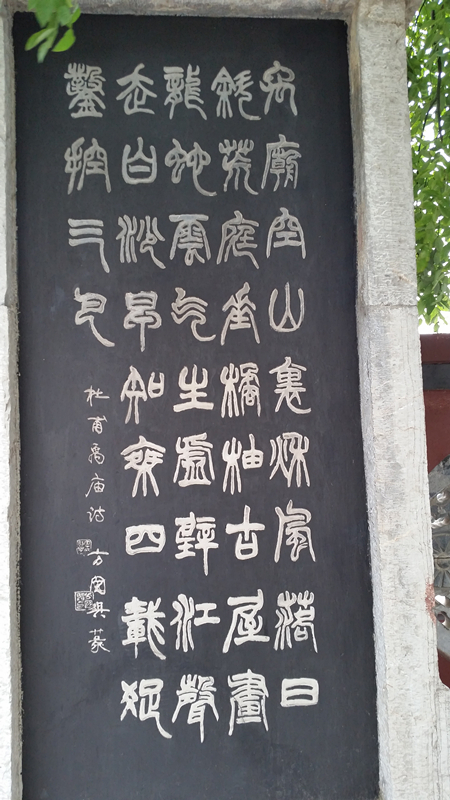 禹廟空山裏秋風落日
斜荒庭垂橘柚古屋畫
龍蛇雲气生虛壁江聲
走白沙早知乘四載疏
鑿控三巴
杜甫禹庙诗 方 篆